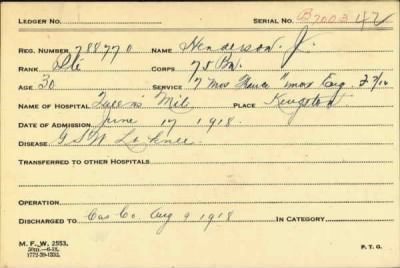 LEDGER NO. SERIAL NO. B7003 42
REG. NUMBER 788770 NAME Henderson. J.
RANK Pte CORPS 75 Bn.
AGE 30 SERVICE 7 mos France 11 mos Eng. 2 7/12
NAME OF HOSPITAL Queens Mil. PLACE Kingston
DATE OF ADMISSION June 17 1918.
DISEASE G S W L. knee.
TRANSFERRED TO OTHER HOSPITALS
OPERATION
DISCHARGED TO Cas Co Aug 9 1918 IN CATEGORY
M. F. W. 2553.
50m.—6-18.
1772-39-1352.
P. T. O.